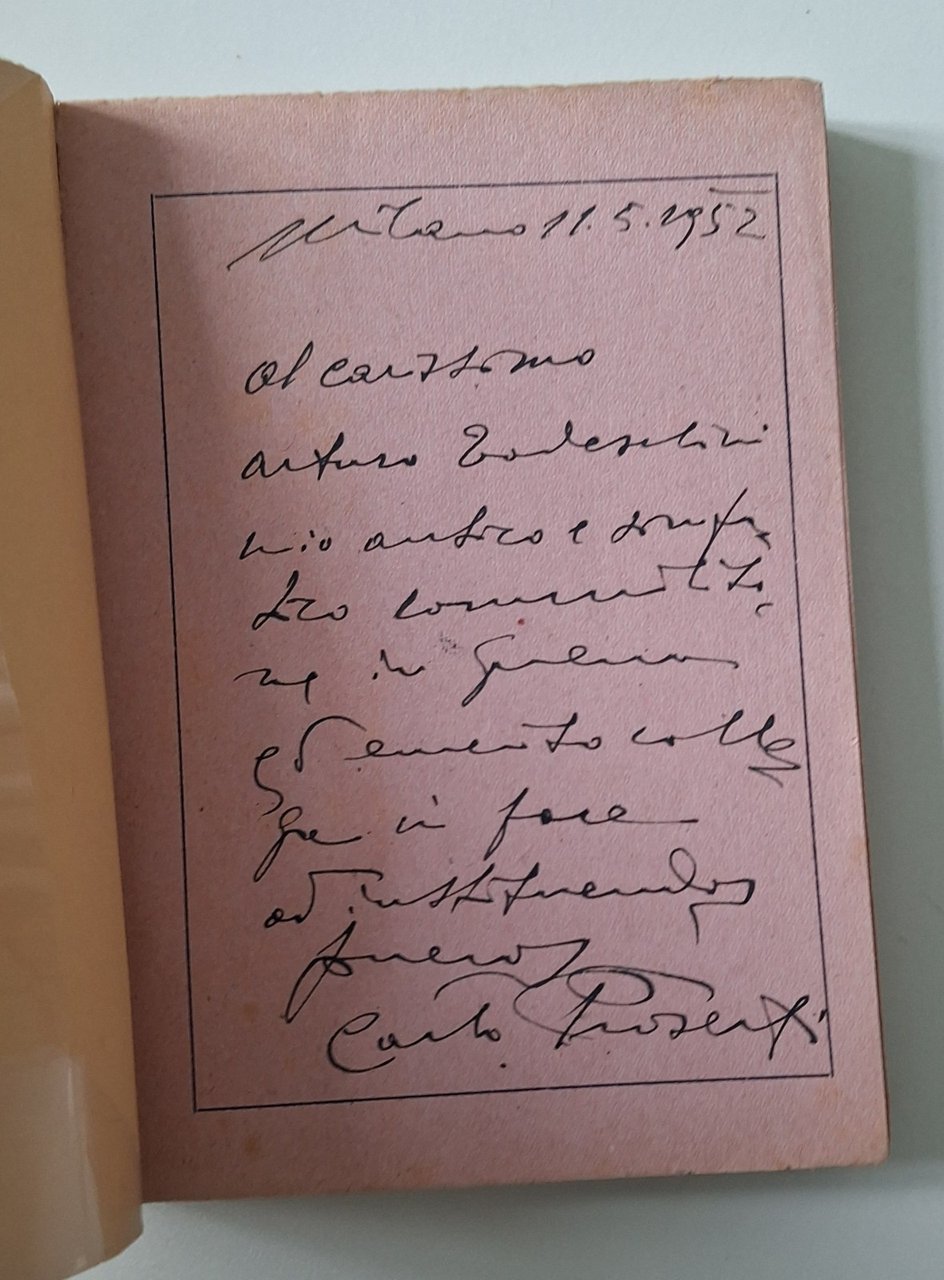 Milano 11.5.1952
Al carissimo
Arturo Todeschini
mio antico e simpa
tico commilito
ne in guerra
ed emerito colle
ga in pace
ad
Carlo Proserpi